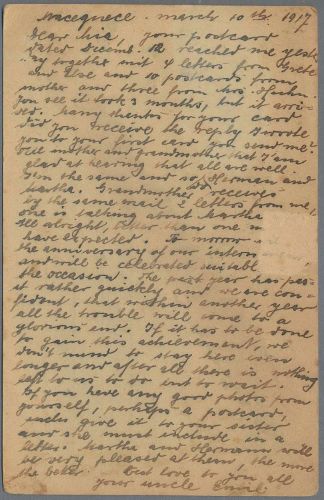 Macequece. March 10th 1917
Dear Mia, your postcard
dated Decemb. 12 reached me yester
ay together with 4 letters from Grete
and Else and 10 postcards from
mother and three from Mrs.
you see it took 3 months, but it arri-
ved. Many thanks for your card
Did you receive the reply I wrote
you to your first card you send me?
Tell mother and grandmother that I am
glad at hearing that all are well.
I am the same and so, Hermann and
Martha. Grandmother will receive
by the same mail 2 letters from me,
one is talking about Martha
all alright, better than one
have expected. To morrow
the anniversary of our intern
and will be celebrated suitable
the occasion. The last year has pas-
st rather quickly and we are con-
fident, that within another year
all the trouble will come to a
glorious end. If it has to be done
to gain this achievement, we
don't mind to stay here even
longer and after all there is nothing
left to us to do but to wait.
If you have any good photos from
yourself, perhaps a postcard,
give it to your sister
and she must include in a
letter. Martha and Hermann will
be very pleased of them, the more
the better. best love to you all
your uncle